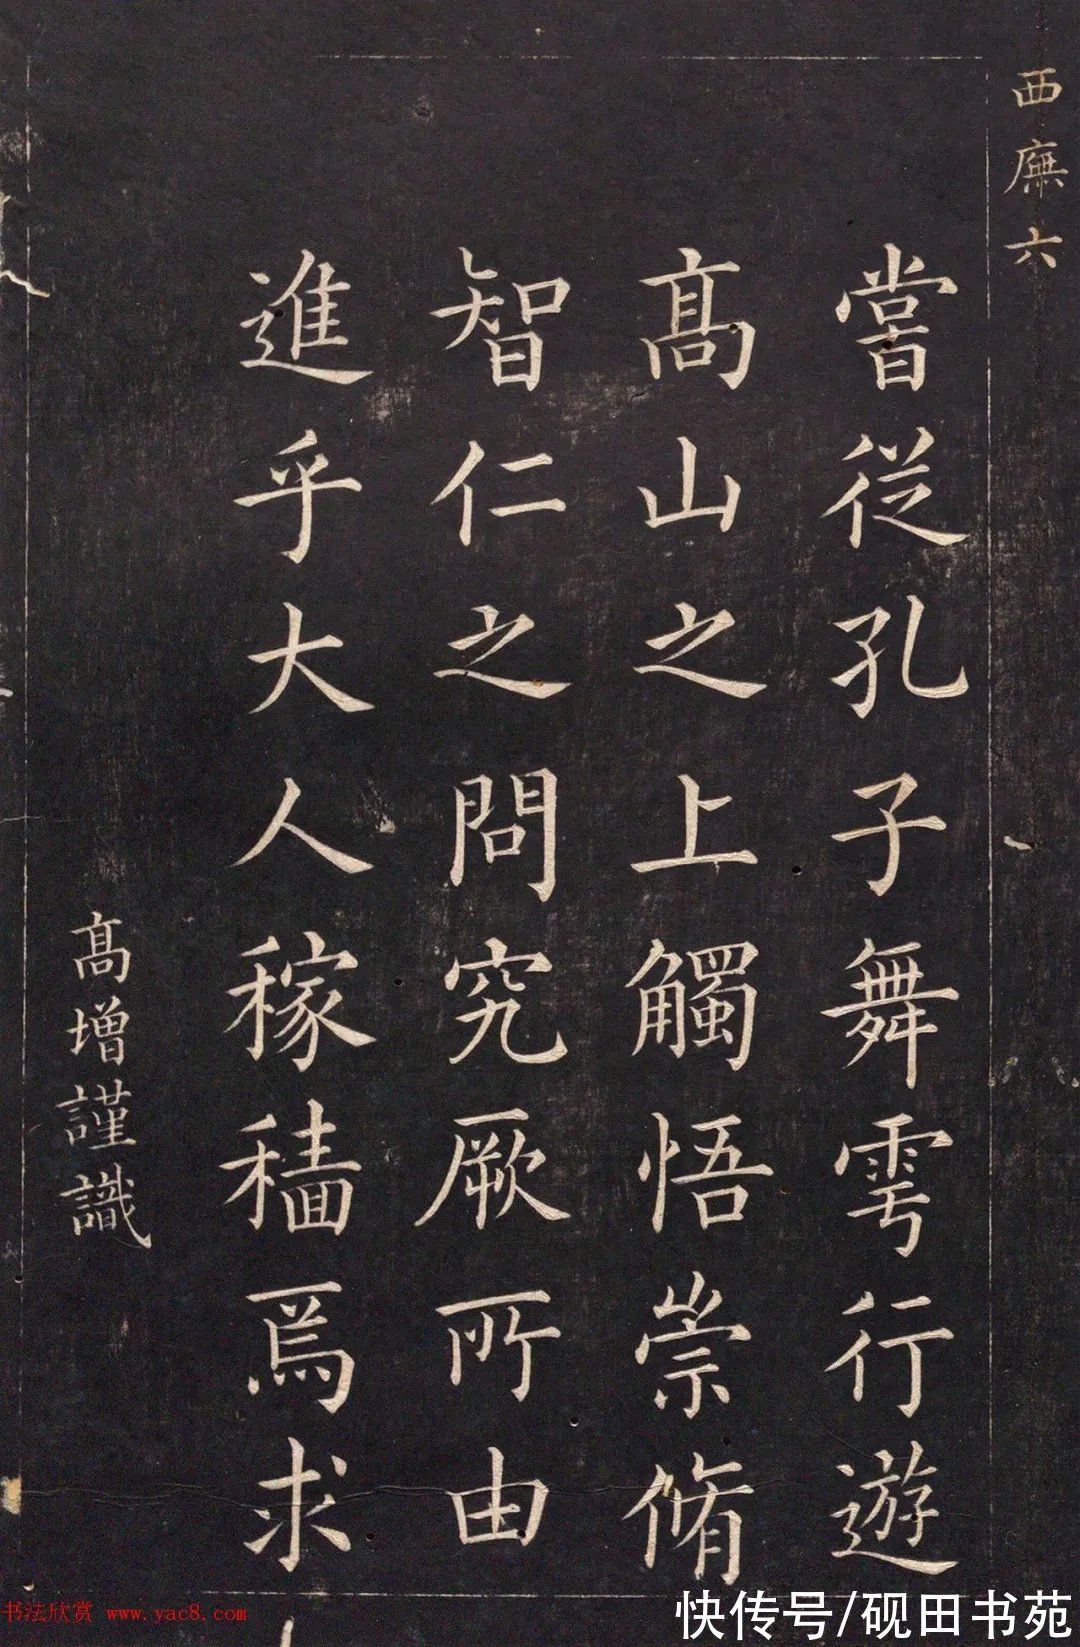 西廡六
嘗從孔子舞雩行遊
髙山之上觸悟崇脩
智仁之問究厥所由
進乎大人稼穡焉求
髙增謹識
书法欣赏 www.yac8.com
快传号/砚田书苑